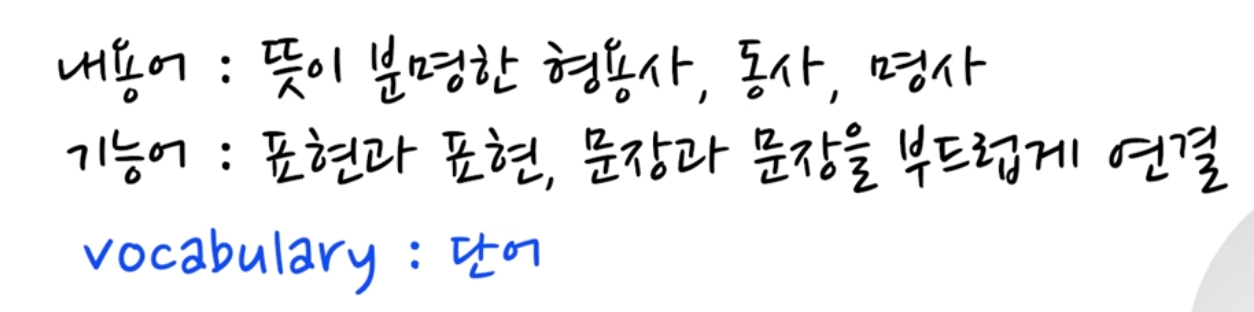 내용어 : 뜻이 분명한 형용사, 동사, 명사
기능어 : 표현과 표현, 문장과 문장을 부드럽게 연결
vocabulary : 단어